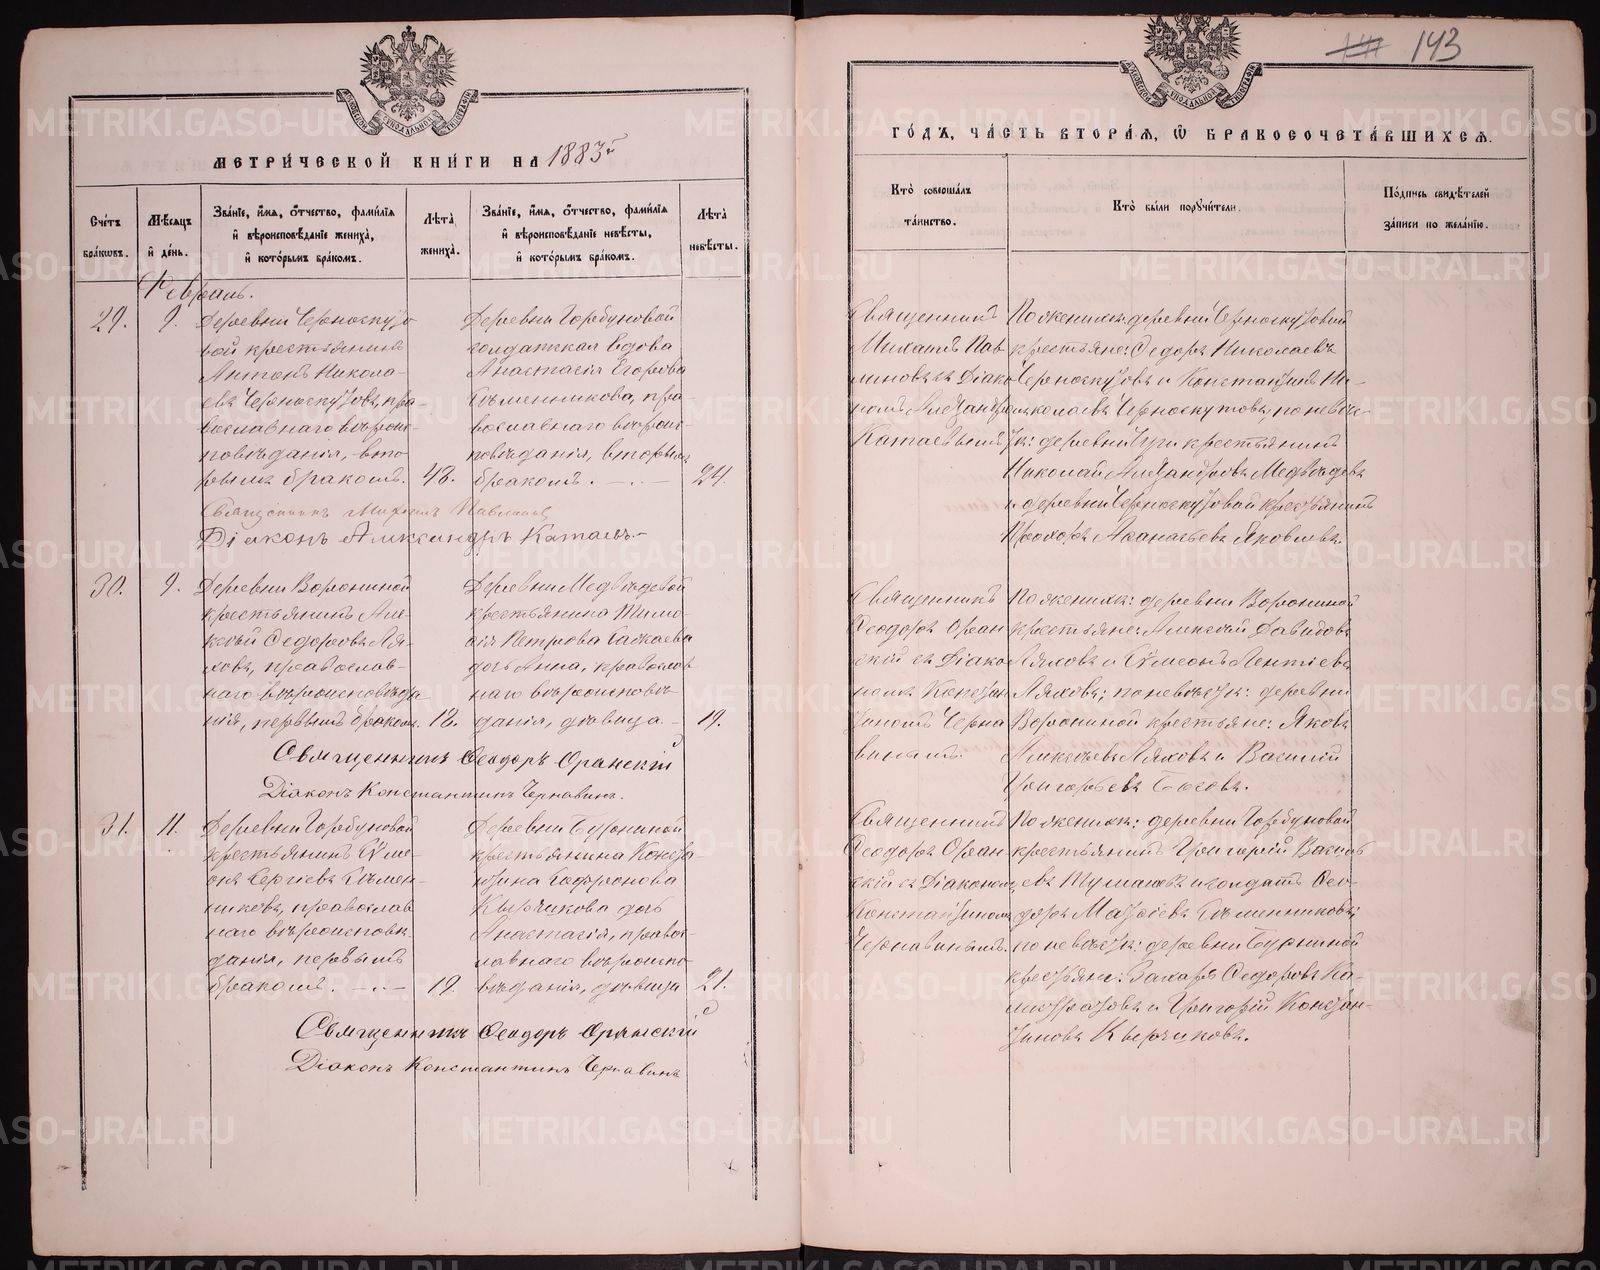 143
МЕТРИ́ЧЕСКОЙ КНИ́ГИ НА 1883й
ГО́ДЪ, ЧА́СТЬ ВТОРА́Я, Ѡ БРАКОСОЧЕТА́ВШИХСЯ.
Сче́тъ бра́кѡвъ.
Мѣ́сяцъ и҆ де́нь.
Зва́нїе, и҆́мя, о҆́тчество, фами́лїя и҆ вѣроисповѣ́данїе жениха̀, и҆ кото́рымъ бра́комъ.
Лѣ́та̀ жениха̀.
Зва́нїе, и҆́мя, о҆́тчество, фами́лїя и҆ вѣроисповѣ́данїе невѣ́сты, и҆ кото́рымъ бра́комъ.
Лѣ́та̀ невѣ́сты.
Кто̀ соверша́лъ та́инство.
Кто̀ бы́ли порꙋчи́тели.
По́дпись свидѣ́телей за́писи по жела́нїю.
Февраль.
29.
9.
Деревни Черноскуто
вой крестьянинъ
Антонъ Никола-
евъ Черноскутовъ, пра-
вославнаго вѣроис-
повѣданія, вто-
рымъ бракомъ.
48.
Деревни Горбуновой
солдатская вдова
Анастасія Егорова
Гѣменникова, пра-
вославнаго вѣроис-
повѣданія, вторымъ
бракомъ.
24.
Священникъ
Михаилъ Пав
линовъ съ Діако
номъ Александро
Катаевымъ
По женихѣ: деревни Черноскутовой
крестьяне: Ѳедоръ Николаевъ
Черноскутовъ и Константинъ Ни-
колаевъ Черноскутовъ, по невѣс-
тѣ: деревни крестьянинъ
Николай Александровъ Медвѣдевъ
и деревни Черноскутовой крестьянинъ
Прохоръ Аѳанасьевъ Яковлевъ.
Священникъ Михаилъ Павлиновъ
Діаконъ Александръ Катаевъ.
30.
9.
Деревни Ворониной
крестьянинъ Але-
ксѣй Ѳедоровъ Ля-
ховъ, православ-
наго вѣроисповѣда
нія, первымъ бракомъ.
18.
Деревни Медвѣдевой
крестьянина Тимо-
ѳія Петрова
дочь Анна, православ
наго вѣроисповѣ-
данія, дѣвица.
19.
Священникъ
Ѳеодоръ Оран-
скій съ Діако
номъ Констан
тиномъ Черна
винымъ.
По женихѣ: деревни Ворониной
крестьяне: Алексѣй Давидовъ
Ляховъ и Сѵмеонъ Леонтіевъ
Ляховъ; по невѣстѣ: деревни
Ворониной крестьяне: Яковъ
Алексѣевъ Ляховъ и Василій
Григорьевъ
Священникъ Ѳеодоръ Оранскій
Діаконъ Константинъ Чернавинъ.
31.
11.
Деревни Горбуновой
крестьянинъ Сѵме-
онъ Сергіевъ Гѣмен-
никовъ, православ
наго вѣроисповѣ-
данія, первымъ
бракомъ.
19.
Деревни Бурниной
крестьянина Конста-
нтина Софронова
Кырчикова дочь
Анастасія, правос-
лавнаго вѣроиспо-
вѣданія, дѣвица
21.
Священникъ
Ѳеодоръ Оран-
скій съ Діакономъ
Константиномъ
Чернавинымъ.
По женихѣ: деревни Горбуновой
крестьянинъ Григорій Василь
евъ Тумашевъ и солдатъ Ѳео-
доръ Матѳіевъ Гѣменниковъ;
по невѣстѣ: деревни Бурниной
крестьяне: Захаръ Ѳедоровъ Ка-
и Григорій Констан-
тиновъ Кырчиковъ.
Священникъ Ѳеодоръ Оранскій
Діаконъ Константинъ Чернавинъ
METRIKI.GASO-URAL.RU